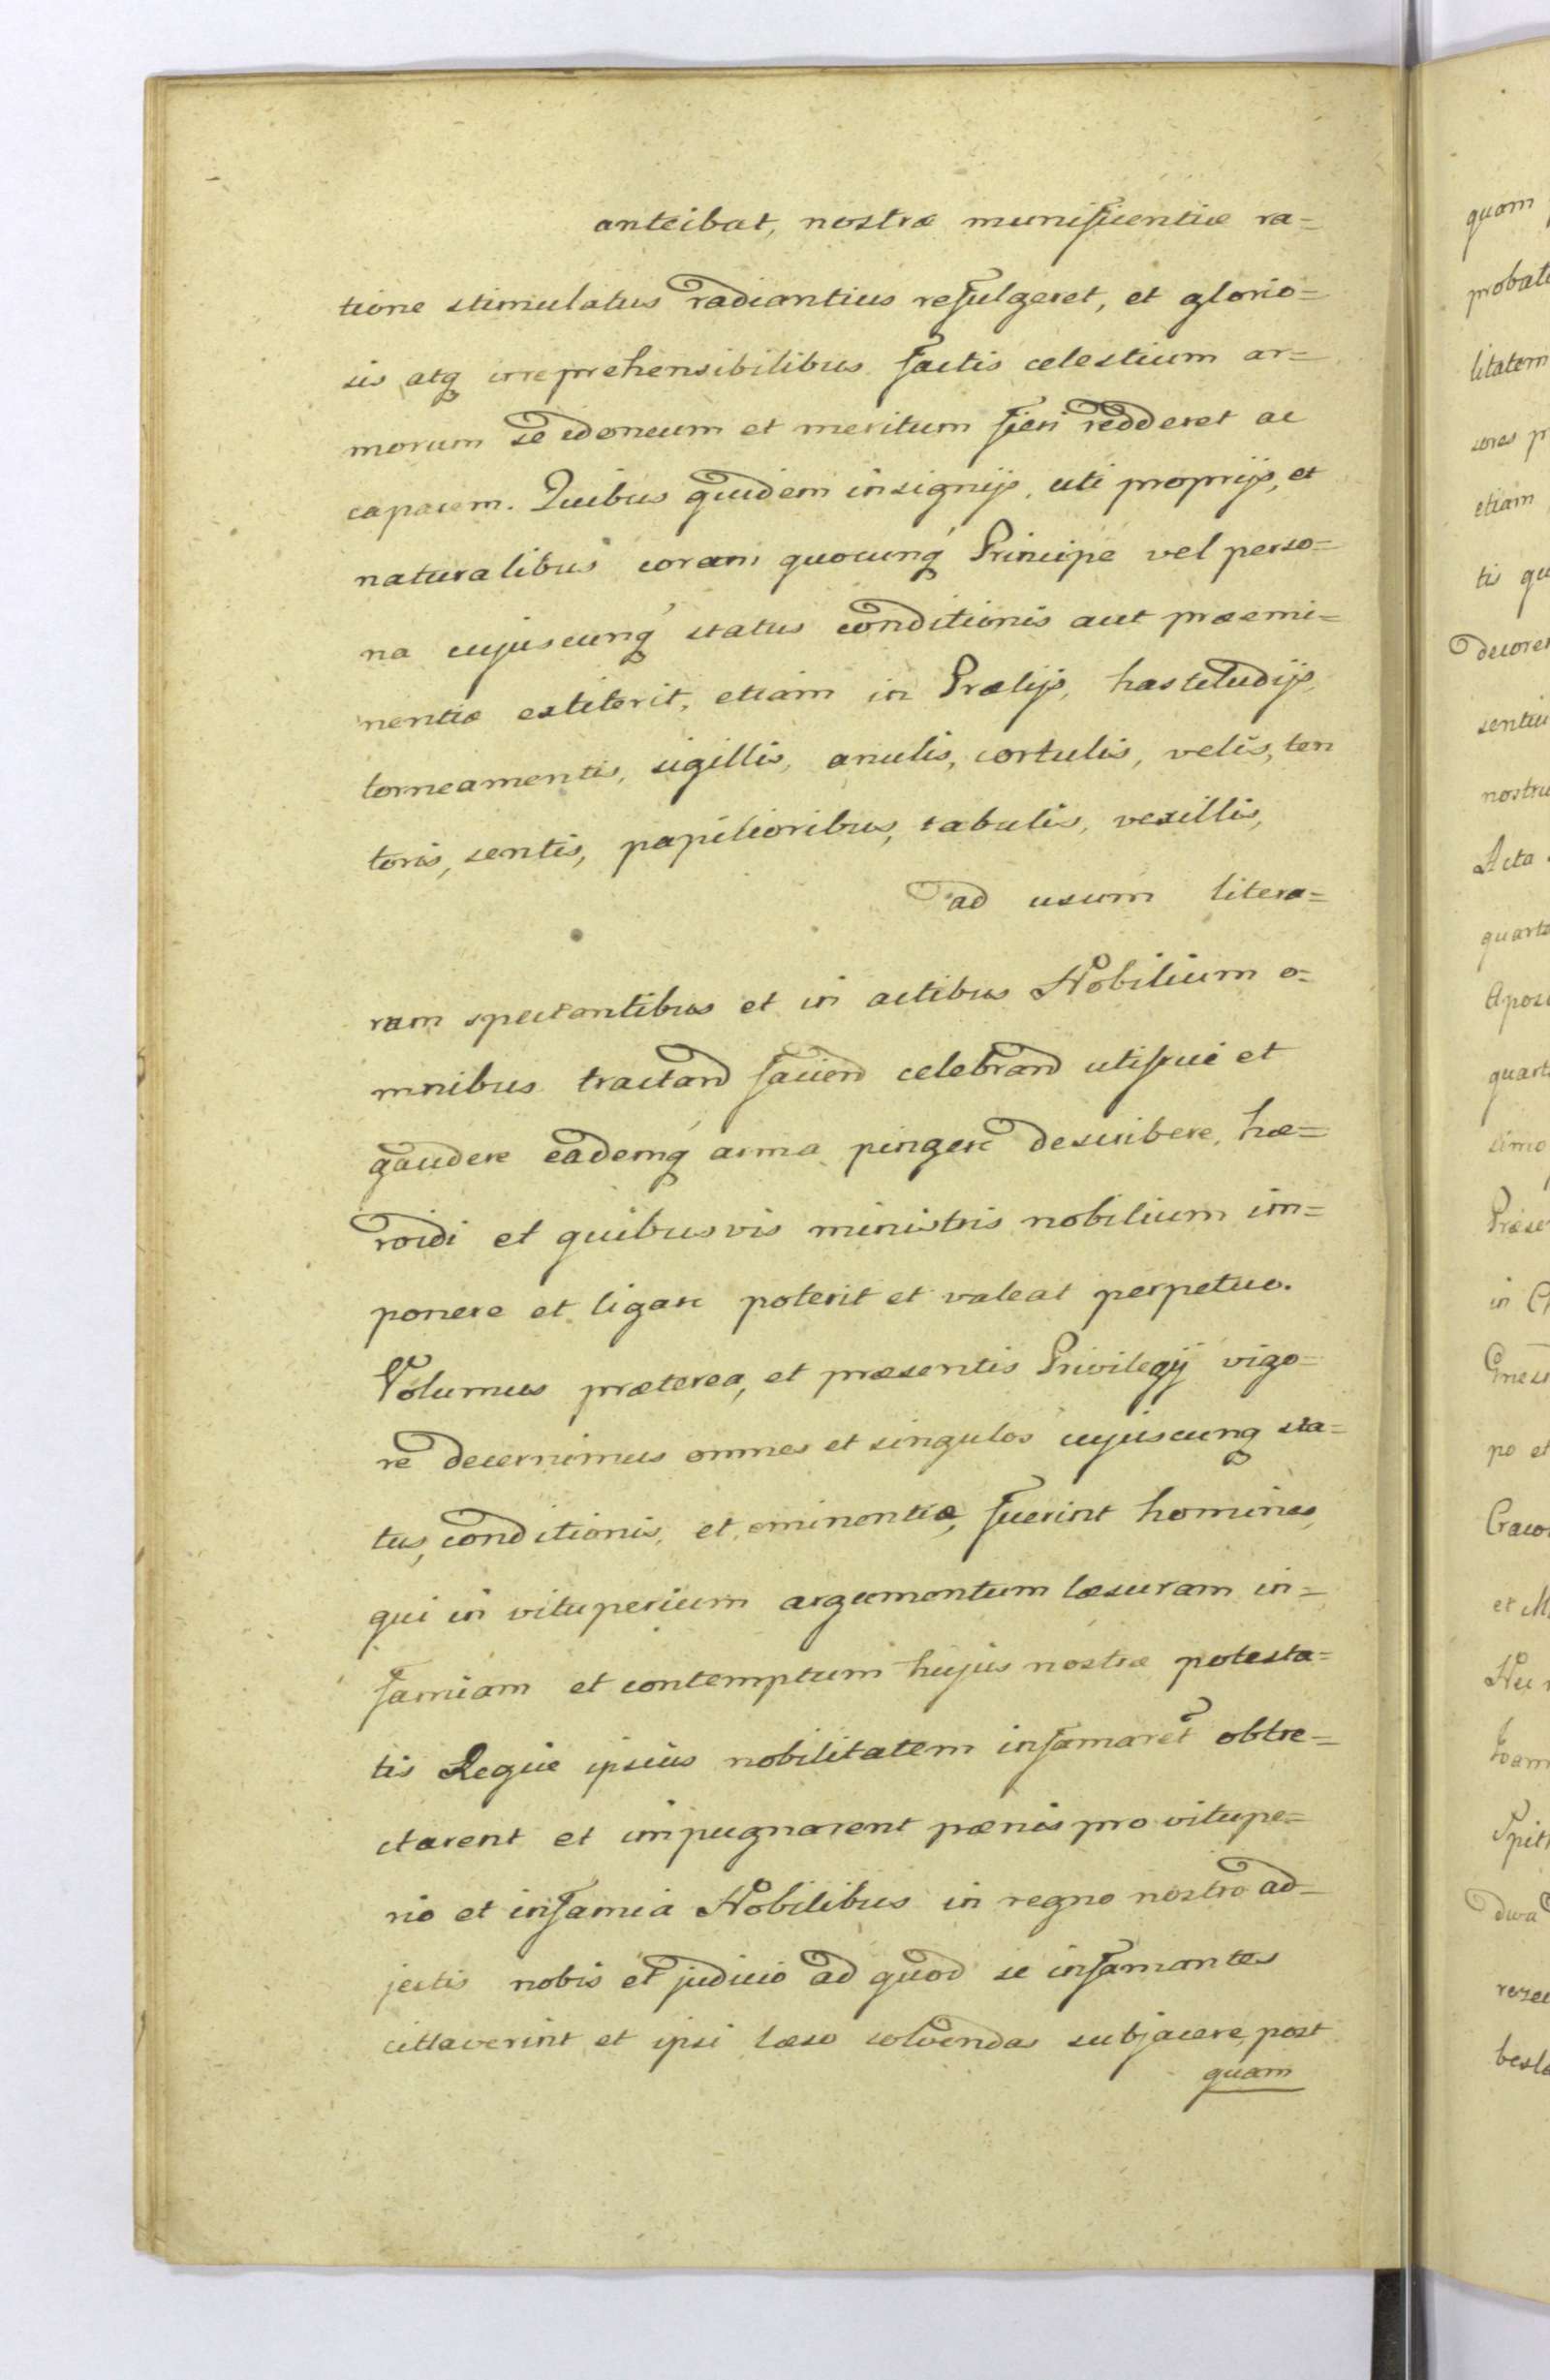 anteibat, nostræ munificentiæ ra=
tione stimulatus radiantius refulgeret, et glorio=
sis atq irreprehensibilibus factis celestium ar=
morum se idoneum et meritum fieri redderet ac
capacem. Quibus quidem insignijs, uti proprijs, et
naturalibus coram quocunq Principe vel perso=
na cujuscunq status conditionis aut præemi=
nentiæ extiterit, etiam in Prælijs, hastiludijs,
torneamentis, sigillis, anulis, cortulis, velis, ten
toris, sentis, papilioribus, tabulis, vexillis,
ad usum litera=
ram spectantibus et in actibus Nobilium o=
mnibus tractand faciend celebrand utifrui et
gaudere eademq arma pingere describere, hæ=
roidi et quibusvis ministris nobilium im=
ponere et ligare poterit et valeat perpetuo.
Volumus præterea, et præsentis Privilegij vigo=
re decernimus omnes et singulos cujuscunq sta=
tus, conditionis, et eminentiæ, fuerint homines,
qui in vituperium argumentum læsuram in=
famiam et contemptum hujus nostræ potesta=
tis Regiæ ipsius nobilitatem infamaret obtre=
ctarent et impugnarent pænis pro vitupe=
rio et infamia Nobilibus in regno nostro ad=
jectis nobis et judicio ad quod se infamantes
cittaverint et ipsi læso solvendas subjacere, post
quam
quam
probat
litatem
sores p
etiam
tis qu
decore
sentiu
nostru
Acta
quart
Apos
quart
simo
Præse
in C
Gnes
po et
Craco
et M
Nu
Joam
Spit
diva
reze
besl